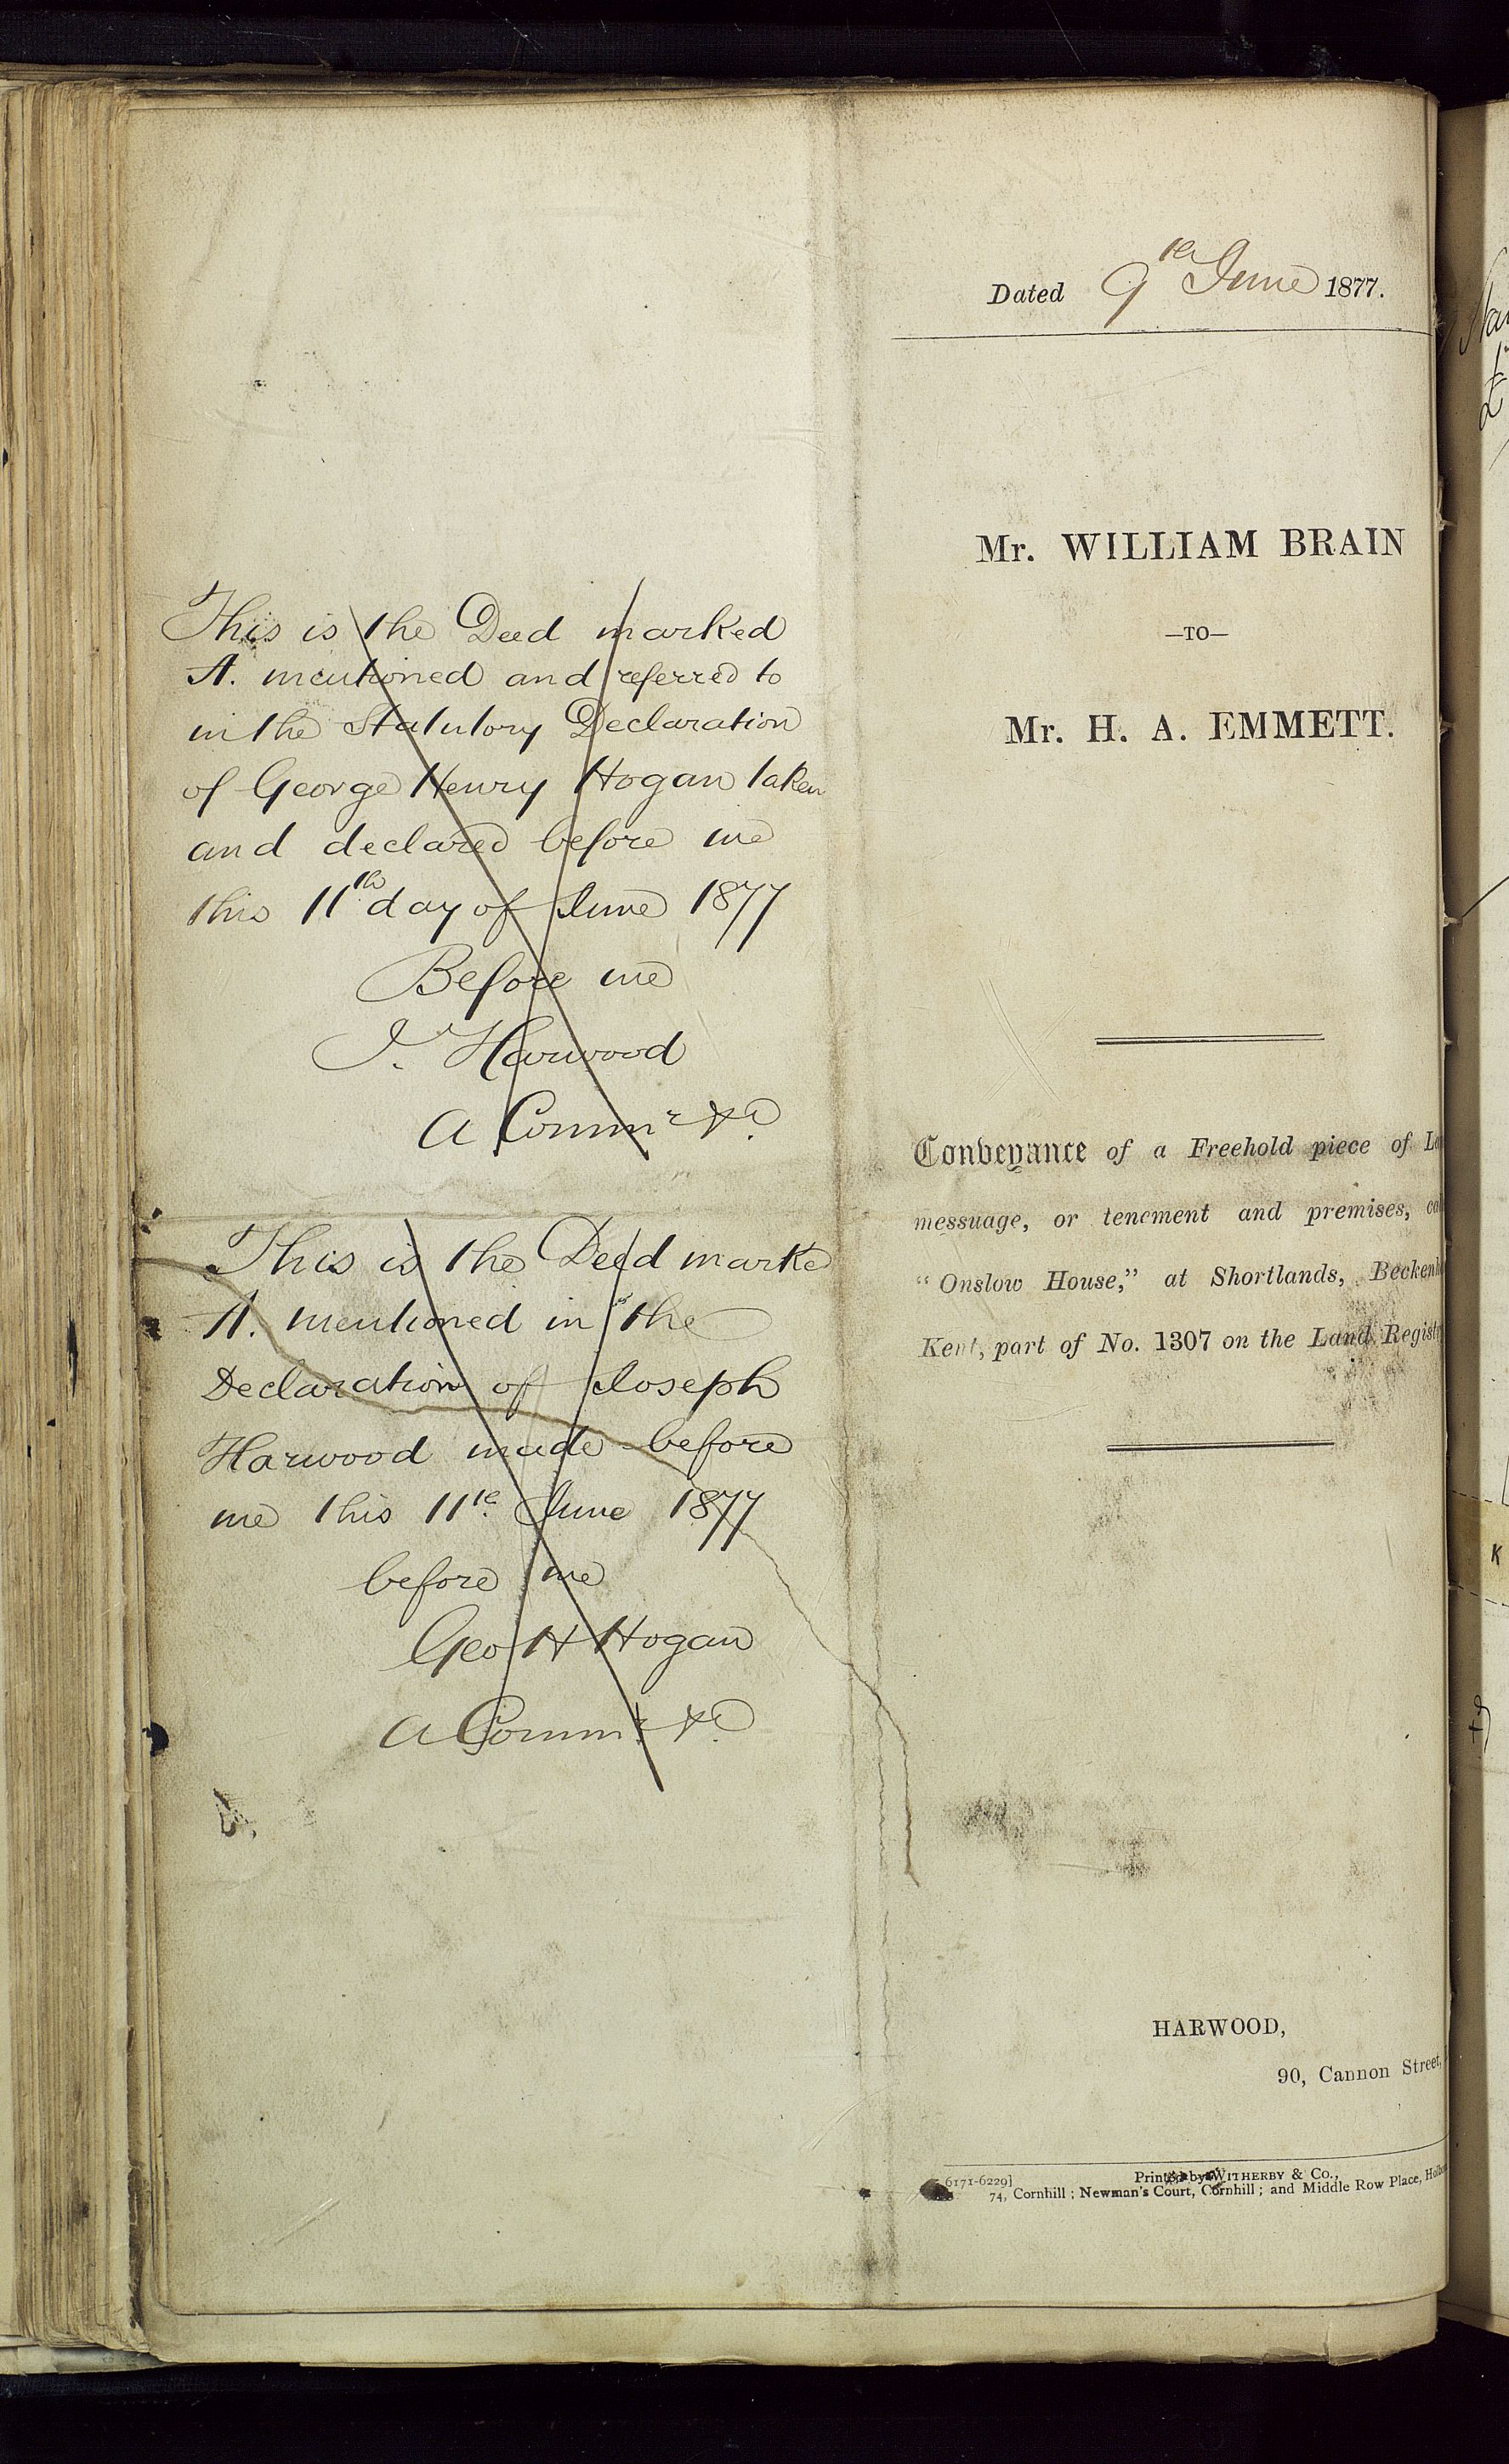 This is the Deed marked
A. mentioned and referred to
in the Statutory Declaration
of George Henry Hogan taken
and declared before me
this 11th day of June 1877
Before me
J. Harwood
A Commr &c.
This is the Deed marke
A. mentioned in the
Declaration of Joseph
Harwood made before
me this 11th June 1877
before me
Geo H Hogan
A Commr. &c.
Dated 9th June 1877.
Mr. WILLIAM BRAIN
—TO—
Mr. H. A. EMMETT.
Conveyance of a Freehold piece of
messuage, or tenement and premises,
"Onslow House," at Shortlands,
Kent, part of No. 1307 on the Land
HARWOOD,
90, Cannon Street,
6171-6229]
Printed by WITHERBY & Co.,
74, Cornhill; Newman's Court, Cornhill; and Middle Row Place,